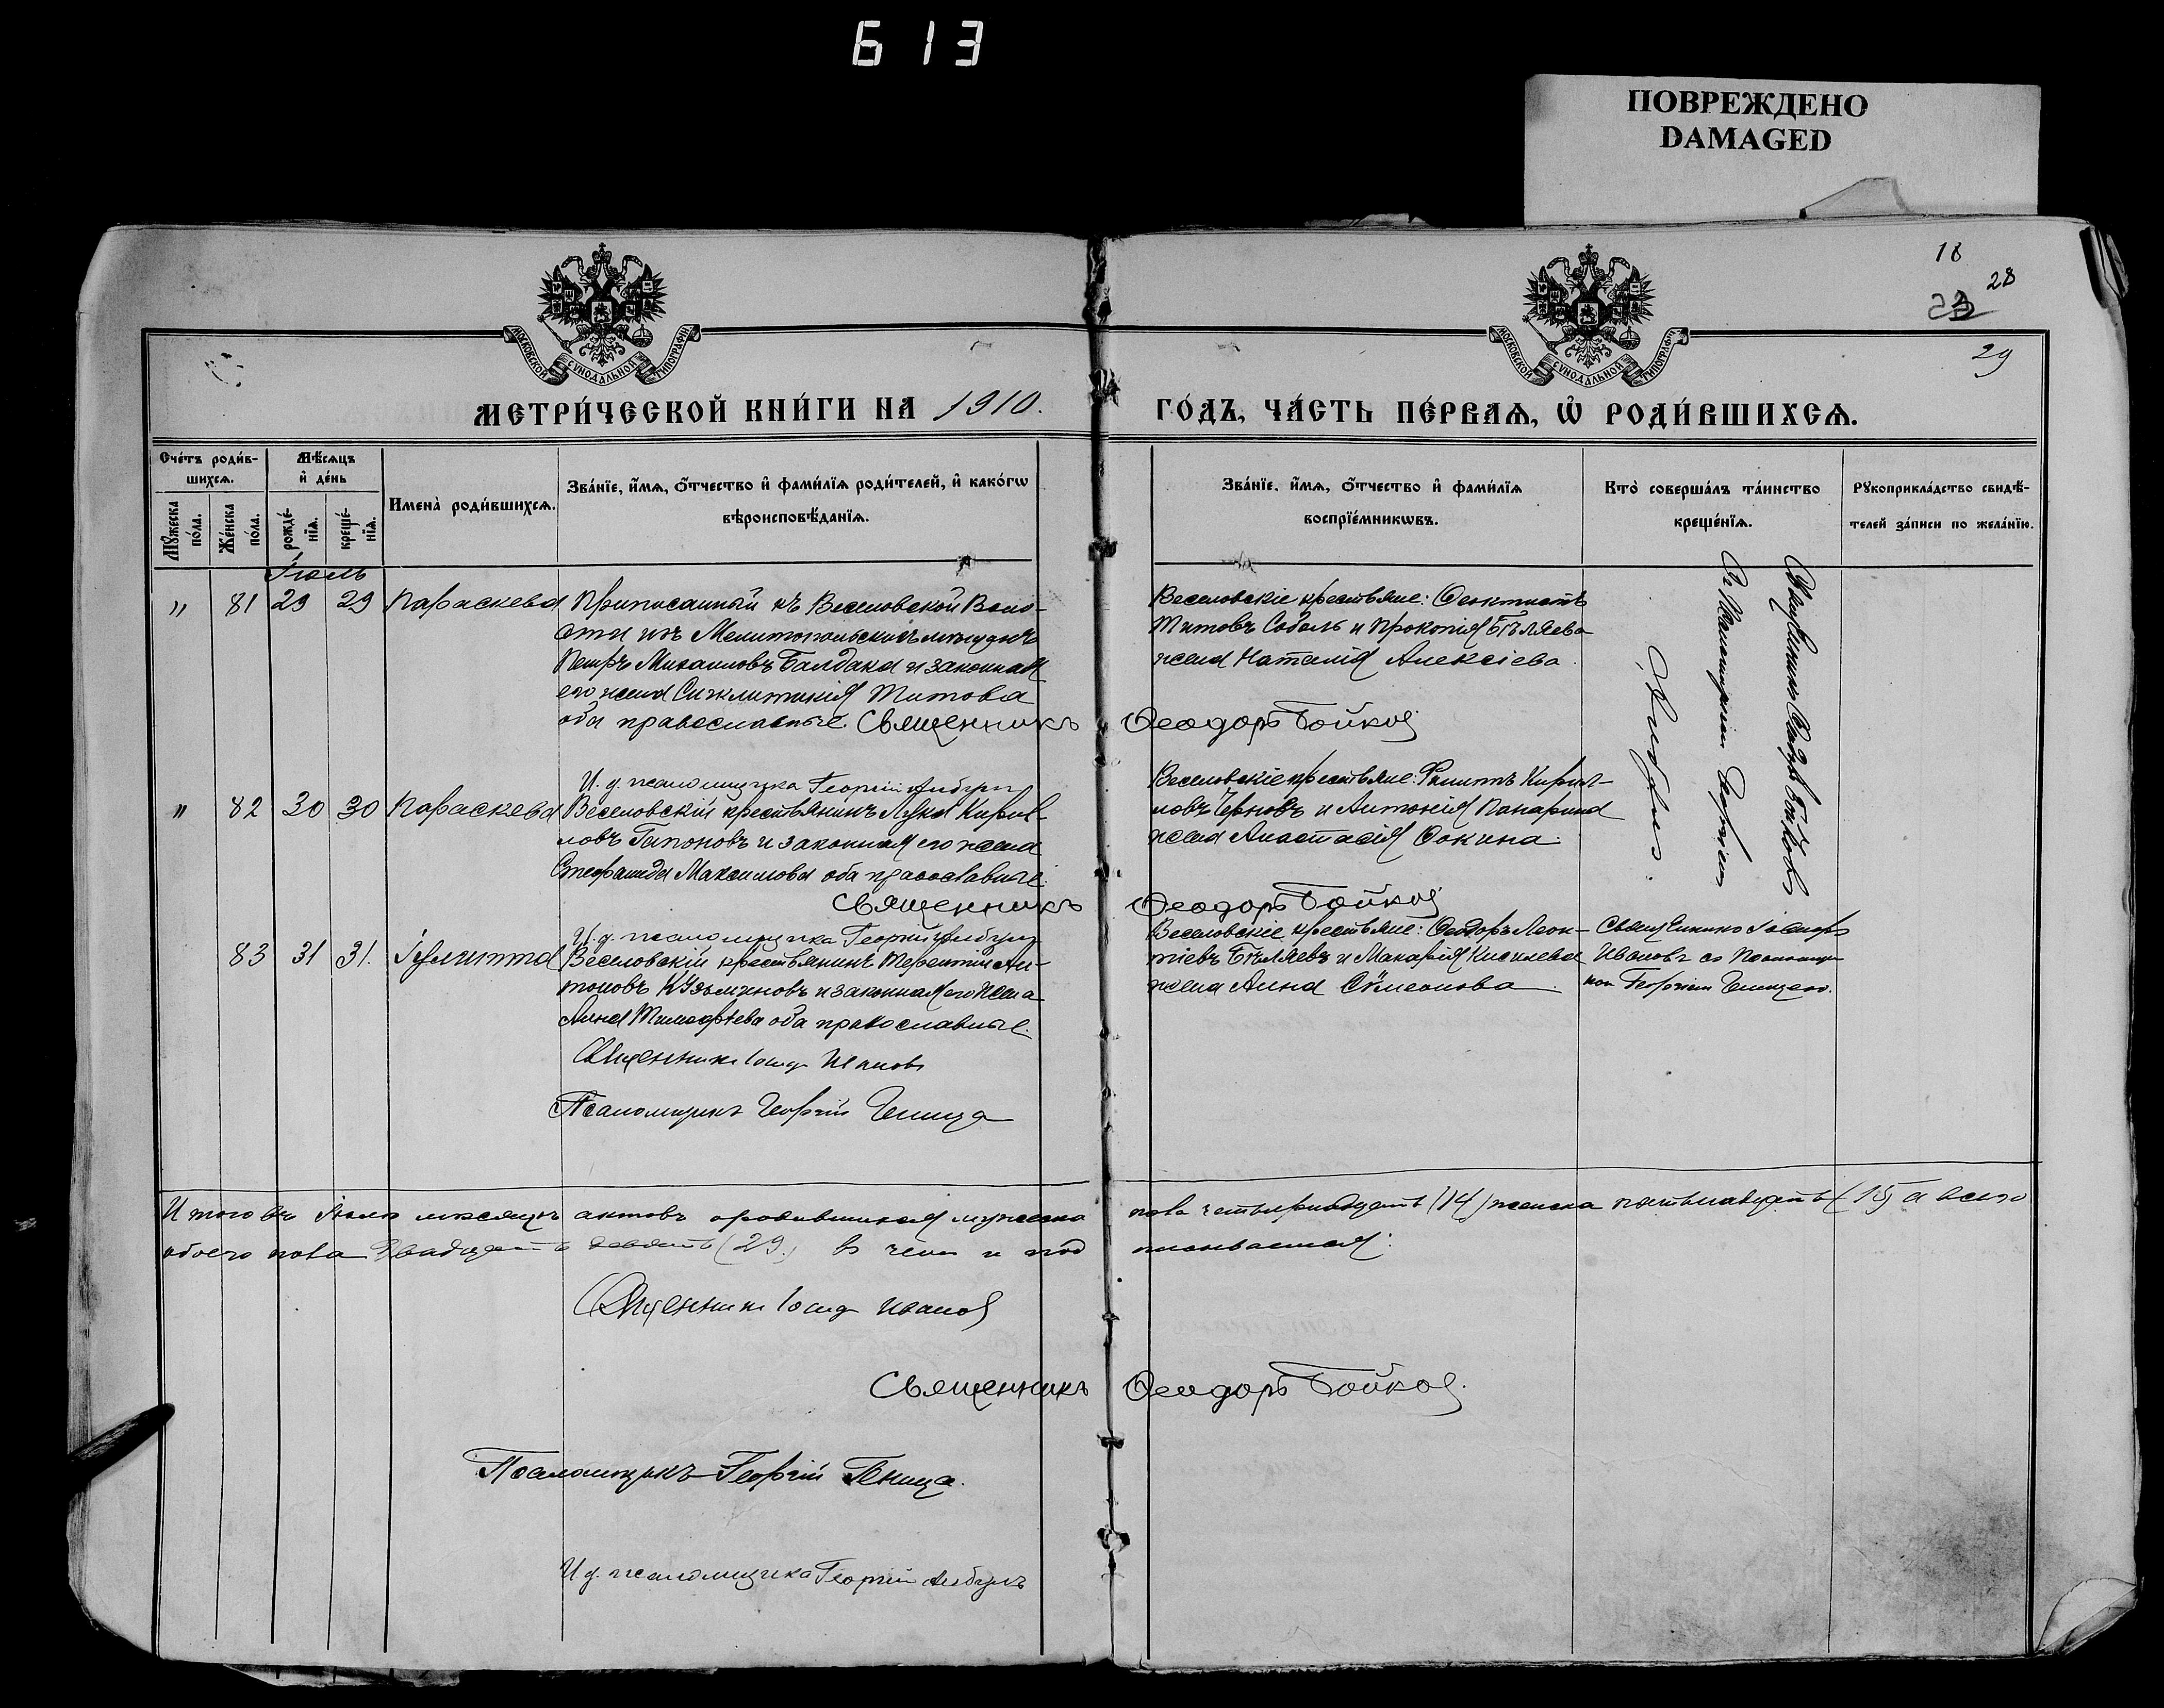 613
ПОВРЕЖДЕНО
DAMAGED
18
28
23
29
МОСКОВСКОЙ СѴНОДАЛЬНОЙ ТИПОГРАФІИ
МОСКОВСКОЙ СѴНОДАЛЬНОЙ ТИПОГРАФІИ
МЕТРИ́ЧЕСКОЙ КНИ́ГИ НА 1910.
ГО́ДЪ, ЧА́СТЬ ПЕ́РВАѦ, Ѡ҆ РОДИ́ВШИХСѦ.
Сче́тъ роди́в-
шихсѧ.
Мꙋ́жеска по́ла.
Же́нска по́ла.
Мѣ́сѧцъ
и҆ де́нь
рожде́-
нїѧ.
креще́-
нїѧ.
Имена̀ роди́вшихсѧ.
Зва́нїе, и҆́мѧ, ѻ҆́тчество и҆ фами́лїѧ роди́телей, и҆ како́гѡ
вѣроисповѣ́данїѧ.
Зва́нїе, и҆́мѧ, ѻ҆́тчество и҆ фами́лїѧ
воспрїе́мникѡвъ.
Кто̀ соверша́лъ та́инство
креще́нїѧ.
Рꙋкоприкла́дство свидѣ́-
телей за́писи по жела́нїю.
Іюль
" 81 29 29 Параскева
Приписанный къ Веселовской Воло-
сти изъ Мелитопольскихъ мѣщанъ
Петръ Михаиловъ Балдака и законная
его жена Синклитикія Титова
оба православные. Священникъ Ѳеодоръ Бойковъ
И. д. псаломщика Георгій
Веселовскіе крестьяне: Ѳеоктистъ
Титовъ Соболь и Прокопія Бѣляева
жена Наталія Алексіева.
Священникъ Ѳеодоръ Бойковъ
" 82 30 30 Параскева
Веселовскій крестьянинъ Лука Кирил-
ловъ Гапоновъ и законная его жена
Стефанида Максимова оба православные.
Священникъ Ѳеодоръ Бойковъ
И. д. псаломщика Георгій
Веселовскіе крестьяне: Филиппъ Кирил-
ловъ Черновъ и Антонія Панарина
жена Анастасія Ѳокина.
83 31 31. Іулитта
Веселовскій крестьянинъ Терентій Ан-
тоновъ Кузьминовъ и законная его жена
Анна Тимоѳеева оба православные.
Священникъ Іосифъ Ивановъ
Псаломщикъ Георгій Геница
Веселовскіе крестьяне: Ѳеодоръ Леон-
тіевъ Бѣляевъ и Макарія Киселева
жена Анна Сѵмеонова.
Священникъ Іосифъ
Ивановъ со Псаломщи-
комъ Георгіемъ Геницею.
Итого въ Іюлѣ мѣсяцѣ актовъ о родившихся мужеска пола четырнадцать (14) женска пятнадцать (15) а всего
обоего пола двадцать девять (29.) въ чемъ и под писываемся:
Священникъ Іосифъ Ивановъ
Священникъ Ѳеодоръ Бойковъ.
Псаломщикъ Георгій Геница.
И д. псаломщика Георгій